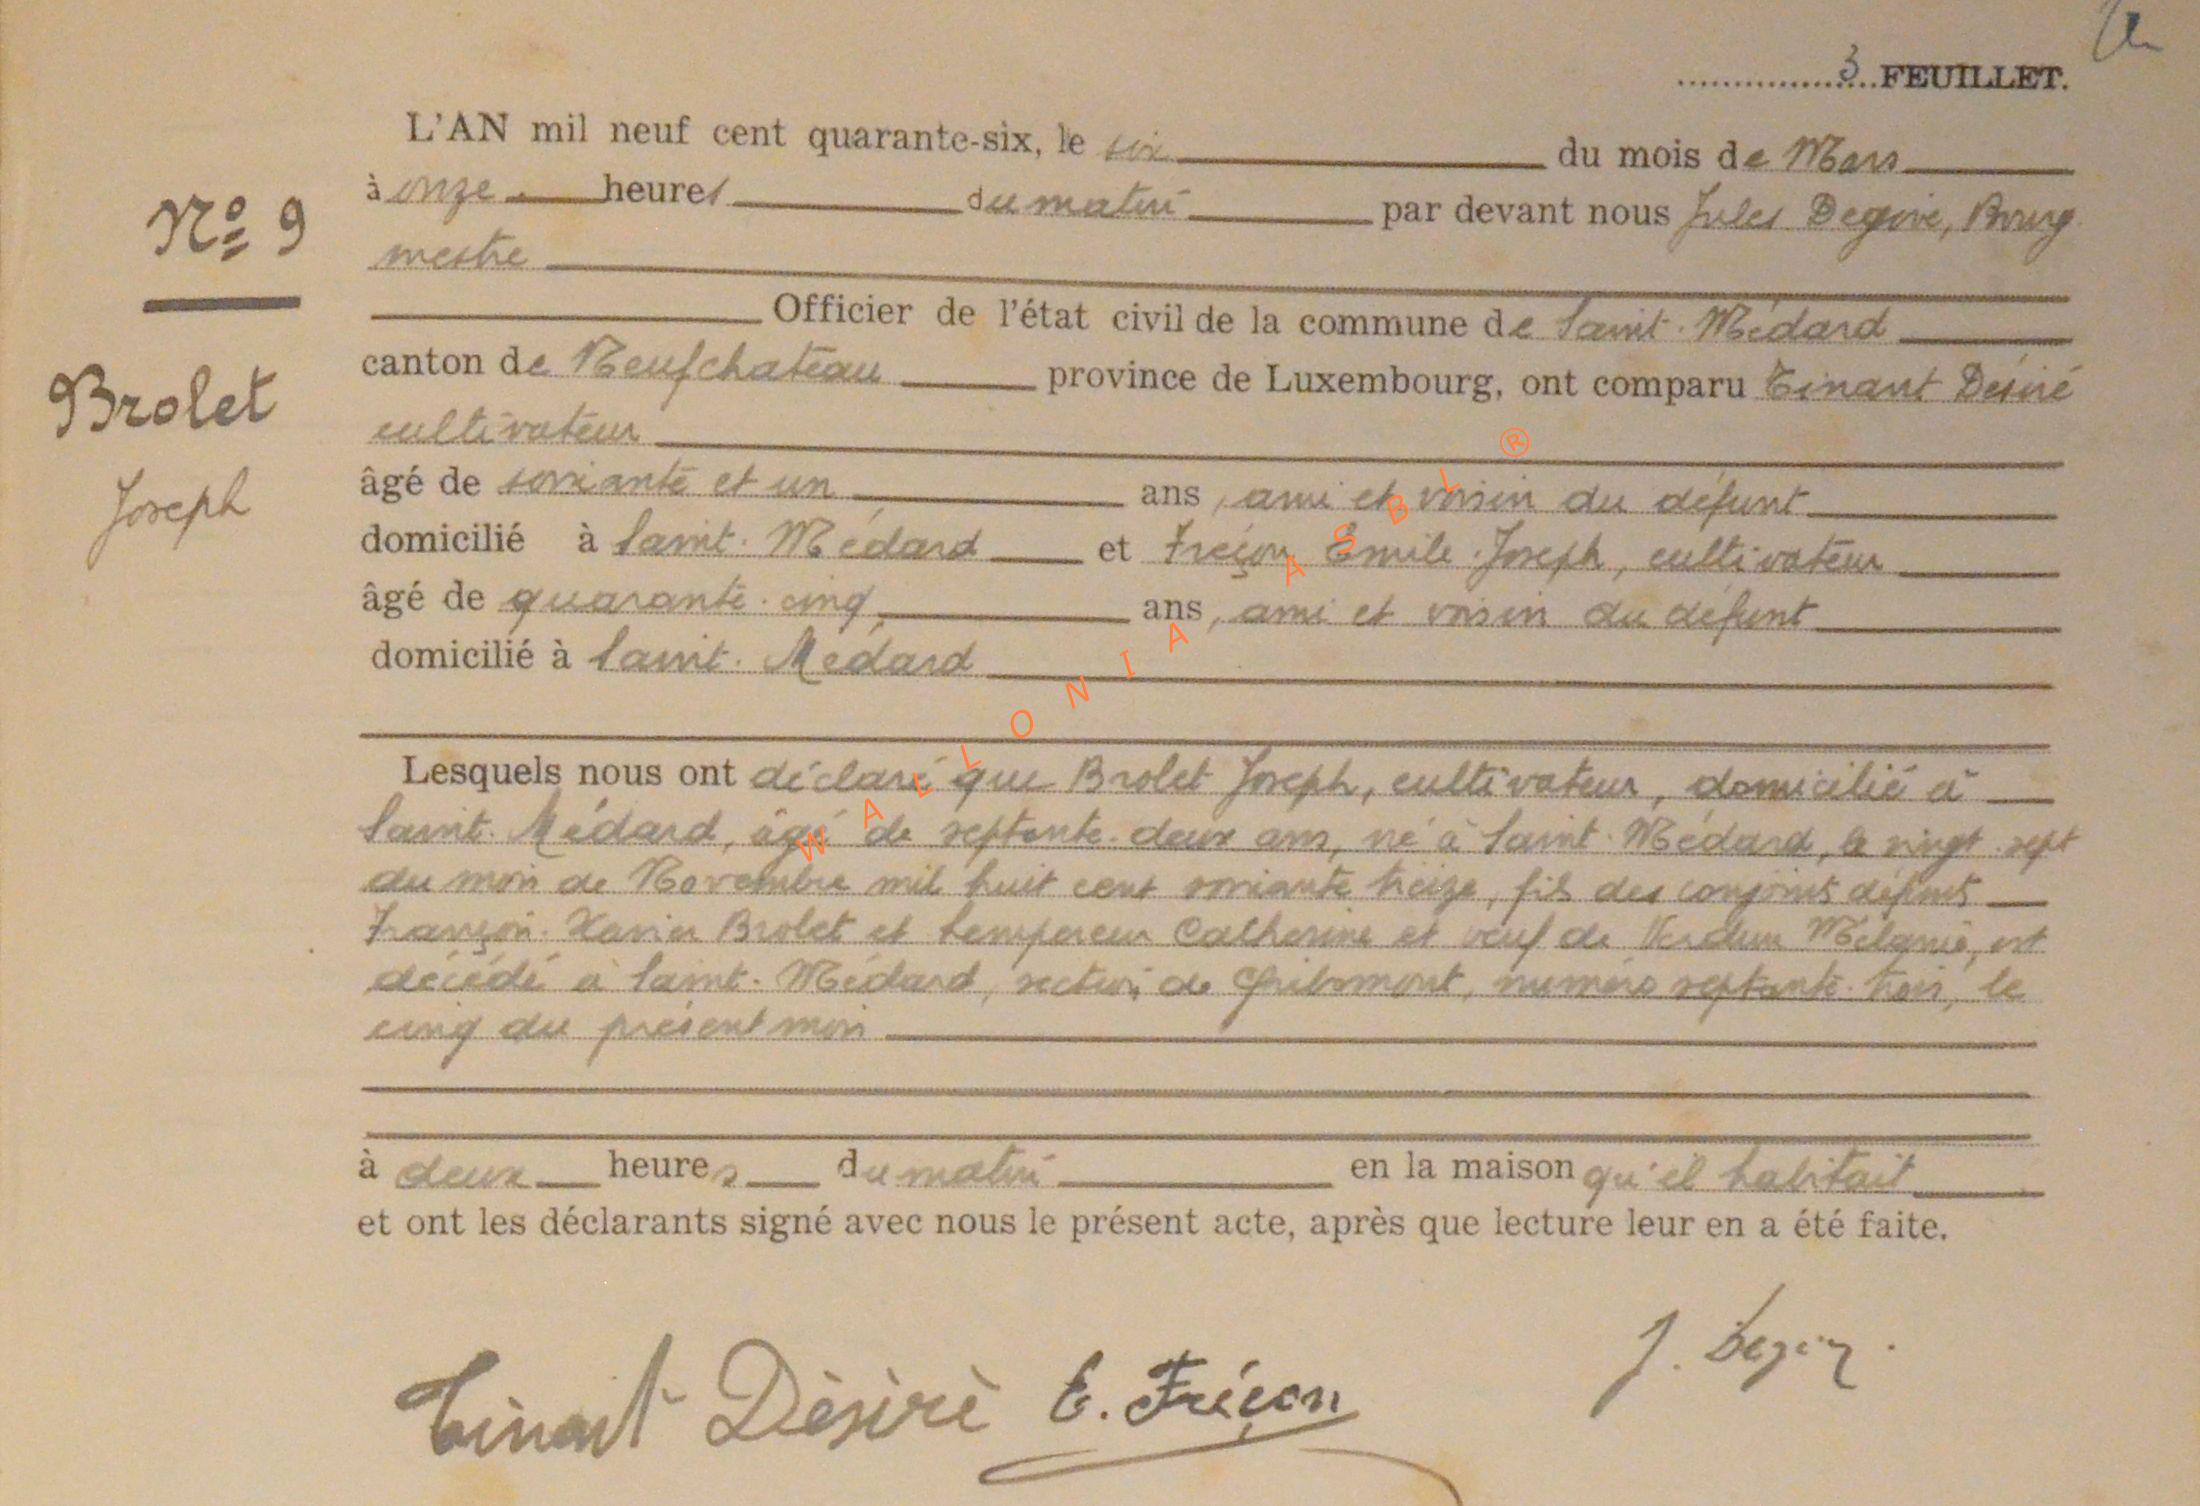 3 FEUILLET.
L'AN mil neuf cent quarante-six, le six du mois de Mars
à onze heures du matin par devant nous Jules Degive, Bourg
mestre
Nº 9
Officier de l'état civil de la commune de Saint-Médard
canton de Neufchateau province de Luxembourg, ont comparu Tinant Désiré
cultivateur
Brolet
Joseph
âgé de soixante et un ans, ami et voisin du défunt
domicilié à Saint-Médard et Fréçon Emile-Joseph, cultivateur
âgé de quarante-cinq ans, ami et voisin du défunt
domicilié à Saint-Médard
Lesquels nous ont déclaré que Brolet Joseph, cultivateur, domicilié à
Saint-Médard, âgé de septante-deux ans, né à Saint-Médard, le vingt-sept
du mois de Novembre mil huit cent soixante treize, fils des conjoints défunts
François-Xavier Brolet et Lempereur Catherine et veuf de Verdun Mélanie, est
décédé à Saint-Médard, section de Gribomont, numéro septante-trois, le
cinq du présent mois
à deux heures du matin en la maison qu'il habitait
et ont les déclarants signé avec nous le présent acte, après que lecture leur en a été faite.
J. Degive
Tinant Dèsirè E. Fréçon
WALLONIA ASBL ®